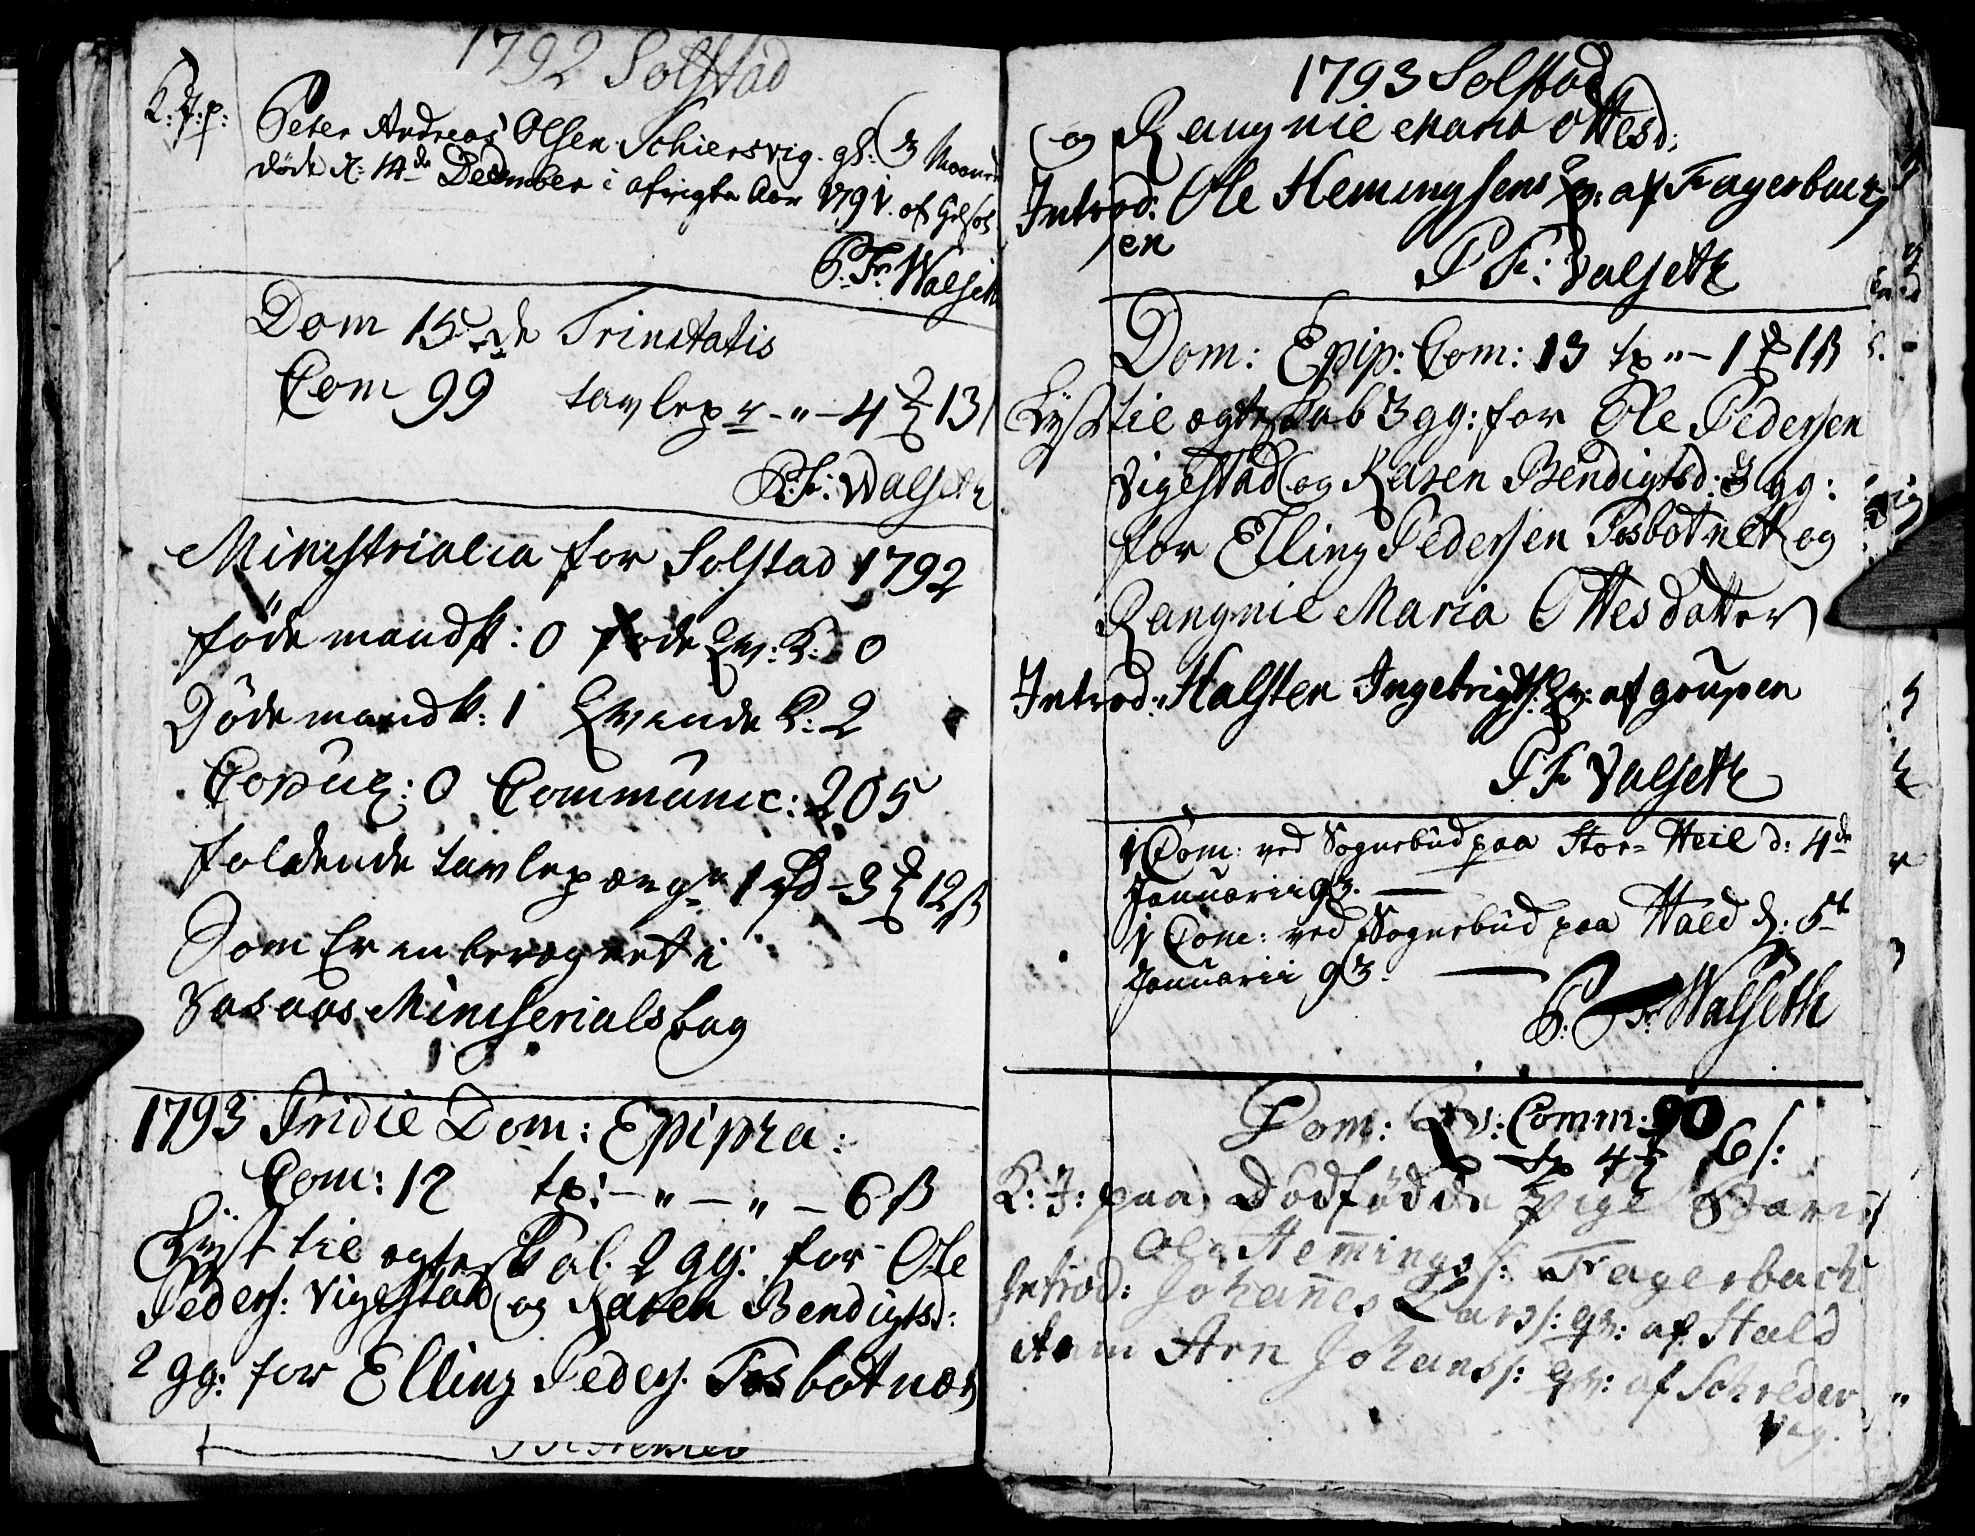 1792 Solstad
K: J: p: Peter Andreas Olsen Schiersvig. gl: 3 Maaned
døde d: 14de December i afvigte Aar 1791. af
P: Fr: Walseth
Dom 15de Trinitatis
Com 99 tavlep - " - 4 13
P: Fr: Walseth
Ministrialia for Solstad 1792
føde mandk: 0 føde Qv: K: 0
Døde mandk: 1 Qvinde K: 2
Copul: 0 Communic: 205
faldende tavlepæng 1 rd - 3 12 ß
Som Er inberegnet i
Miniserialsbog
1793 Pridie Dom: Epipha:
Com: 12 tp: - " - " - 6 ß
Lyst til ægteskab 2 gg: for Ole
Peders: Vigestad og Karen Bendigtsd:
2 gg: for Elling Peders: Fosbotnæs
1793 Solstad
og Rangnil Maria Ottesd:
Introd: Ole Hemingsens Qv: af Fagerback
en
P Fr: Valseth
Dom: Epip: Com: 13 tp " - 1 1 ß
Lyst til ægteskab 3 gg: for Ole Pedersen
Vigestad og Karen Bendigtsd: 3 gg:
for Elling Pedersen Fosbotnet og
Rangnil Maria Ottesdatter
Introd: Halsten Ingebrigts: Qv: af goupen
P Fr Valseth
1 Com: ved Sognebud paa Stor- Heil d: 4de
Januarii 93.
1 Com: ved Sognebud paa Hald d: 5te
Januarii 93.
P: Fr: Walseth
Dom: Qv: Comm: 90
tp 4 6 s:
K: J: paa, Dødfødde Pige Barn
Ole Hemings: Fagerbach
Introd: Johannes Lars: qv: af Hald
item Arn Johans: qv: af Schreder
vig.